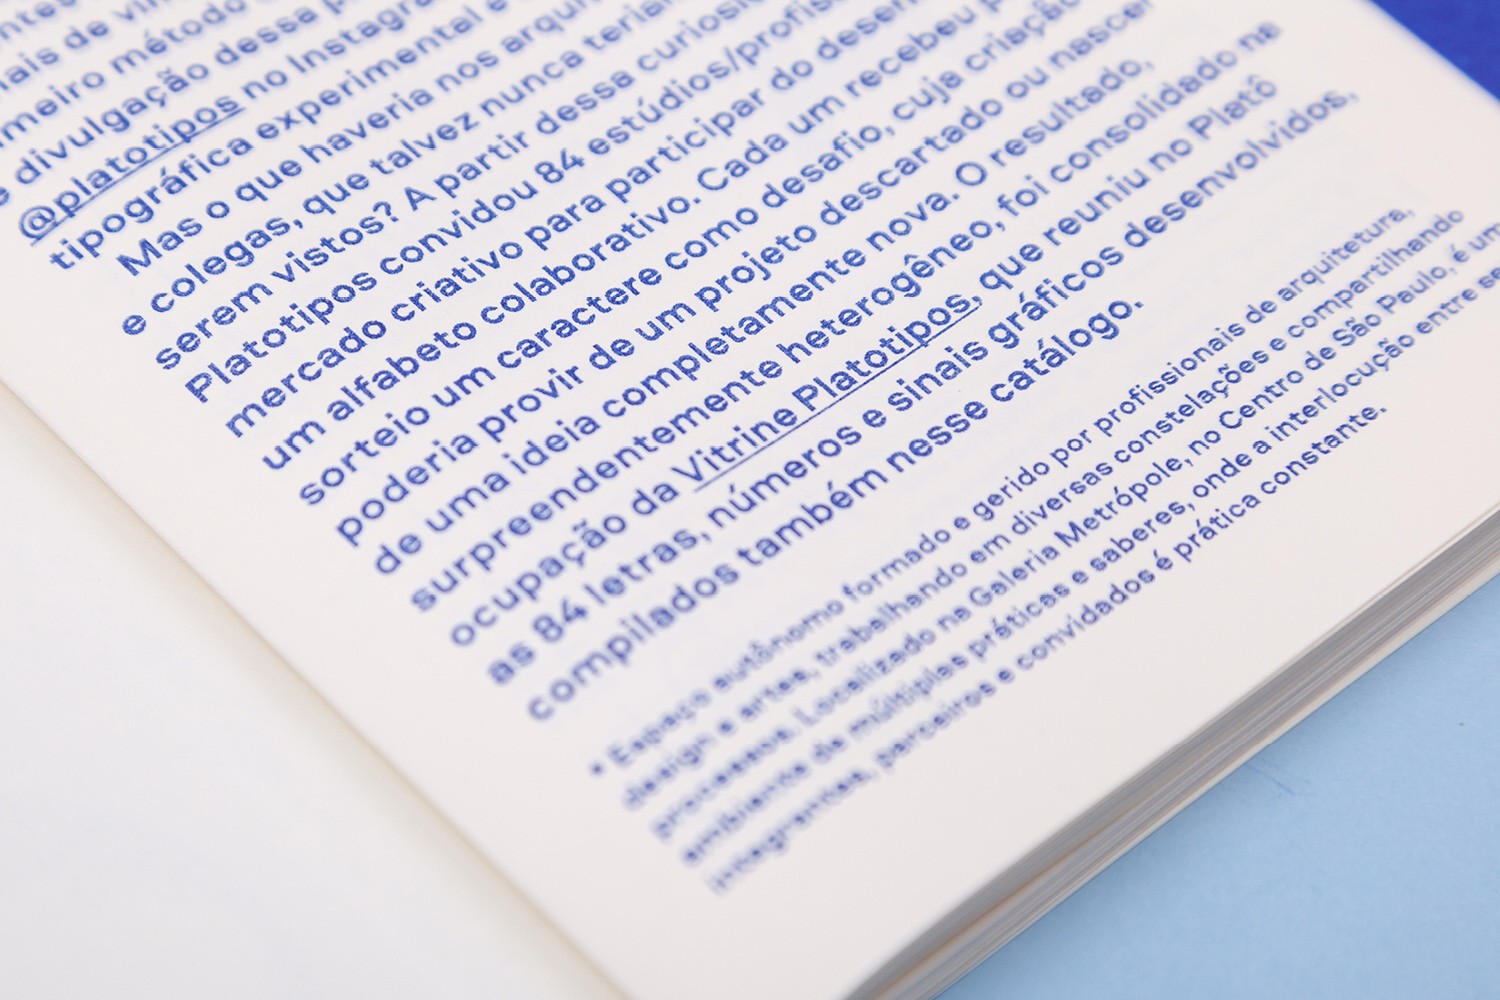 mais de
meiro método
e divulgação dessa
@platotipos no Instagram
tipográfica experimental e
Mas o que haveria nos
e colegas, que talvez nunca teriam
serem vistos? A partir dessa curiosi
Platotipos convidou 84 estúdios/profis
mercado criativo para participar do desen
um alfabeto colaborativo. Cada um recebeu p
sorteio um caractere como desafio, cuja criação
poderia provir de um projeto descartado ou nascer
de uma ideia completamente nova. O resultado,
surpreendentemente heterogêneo, foi consolidado na
ocupação da Vitrine Platotipos, que reuniu no Platô
as 84 letras, números e sinais gráficos desenvolvidos,
compilados também nesse catálogo.
* Espaço autônomo formado e gerido por profissionais de arquitetura,
design e artes, trabalhando em diversas constelações e compartilhando
processos. Localizado na Galeria Metrópole, no Centro de São Paulo, é um
ambiente de múltiplas práticas e saberes, onde a interlocução entre se
integrantes, parceiros e convidados é prática constante.